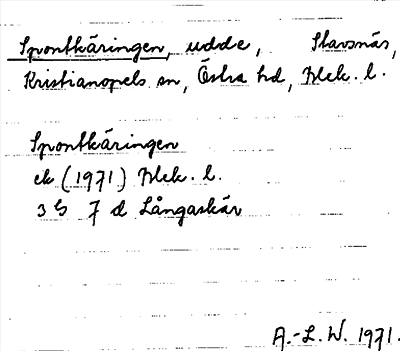 Spontkäringen, udde, Stavsnäs,
Kristianopels sn, Östra hd, Blek. l.
Spontkäringen
ek (1971) Blek. l.
3 G 7 d Långaskär
A.-L. W. 1971.